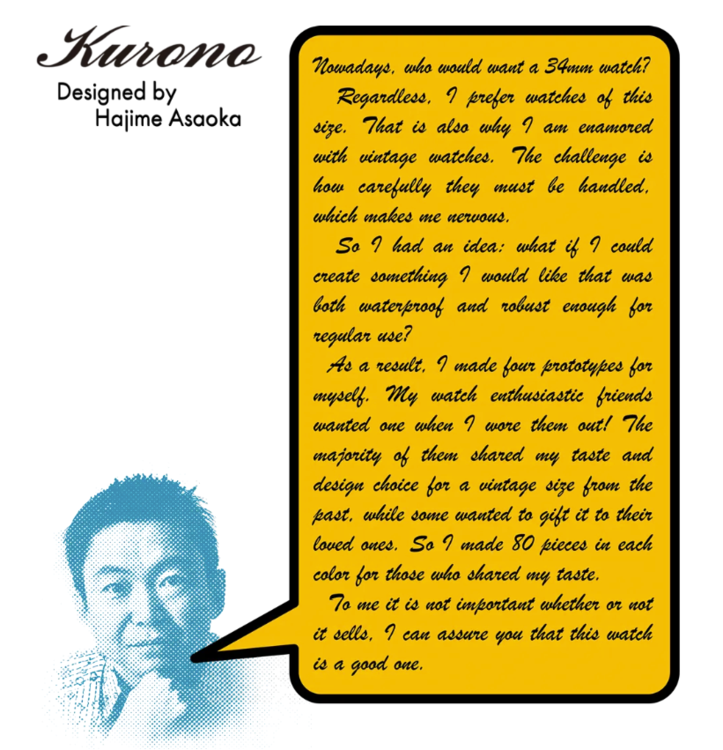 Kurono
Designed by
Hajime Asaoka
Nowadays, who would want a 34mm watch?
Regardless, I prefer watches of this
size. That is also why I am enamored
with vintage watches. The challenge is
how carefully they must be handled,
which makes me nervous.
So I had an idea: what if I could
create something I would like that was
both waterproof and robust enough for
regular use?
As a result, I made four prototypes for
myself. My watch enthusiastic friends
wanted one when I wore them out! The
majority of them shared my taste and
design choice for a vintage size from the
past, while some wanted to gift it to their
loved ones. So I made 80 pieces in each
color for those who shared my taste.
To me it is not important whether or not
it sells, I can assure you that this watch
is a good one.